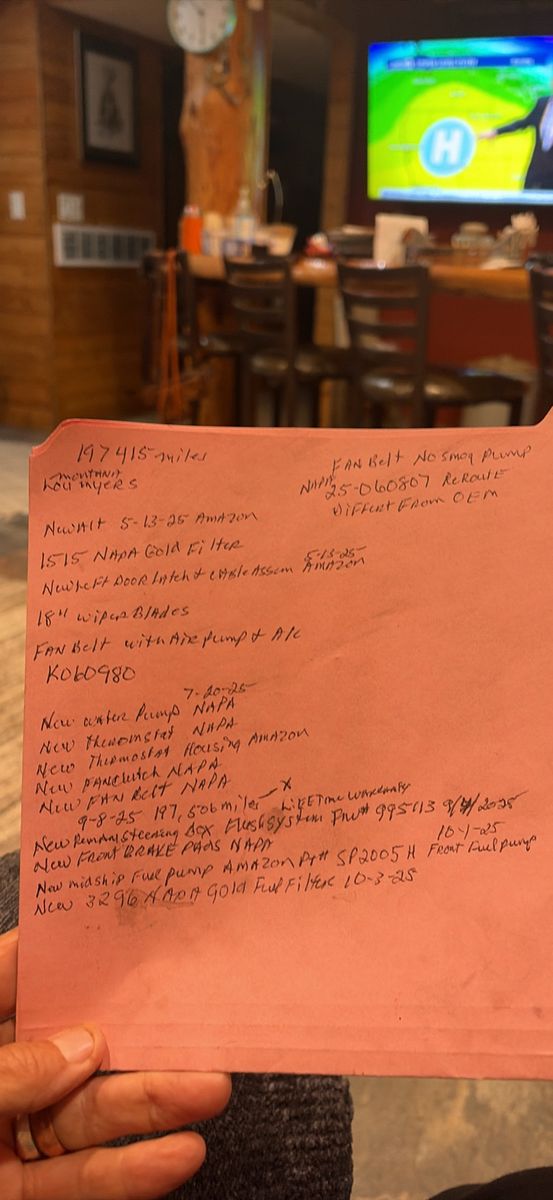 197415 miles
Montana
Lou Myers
FAN Belt No Smog Pump
NAPA 25-060807 ReRoutE
Differt From OEM
New Alt 5-13-25 Amazon
1515 NAPA Gold Filter
New Left Door Latch & cable Assem 5-13-25 Amazon
18" wiper Blades
FAN Belt with Air pump & A/c
K060980
7-20-25
New water Pump NAPA
New Thermostat NAPA
New Thermostat Housing Amazon
New FANclutch NAPA
New FAN Belt NAPA
9-8-25 197,506 miles X LiFETime WARRANTY
New Steering Box Flush System 995113 9/4/2025
New Front BRAKE PADS NAPA
10-1-25
New midship Fuel pump AMAZON Prt# SP2005H Front Fuel pump
New 3296 NAPA Gold Fuel Filter 10-3-25
H